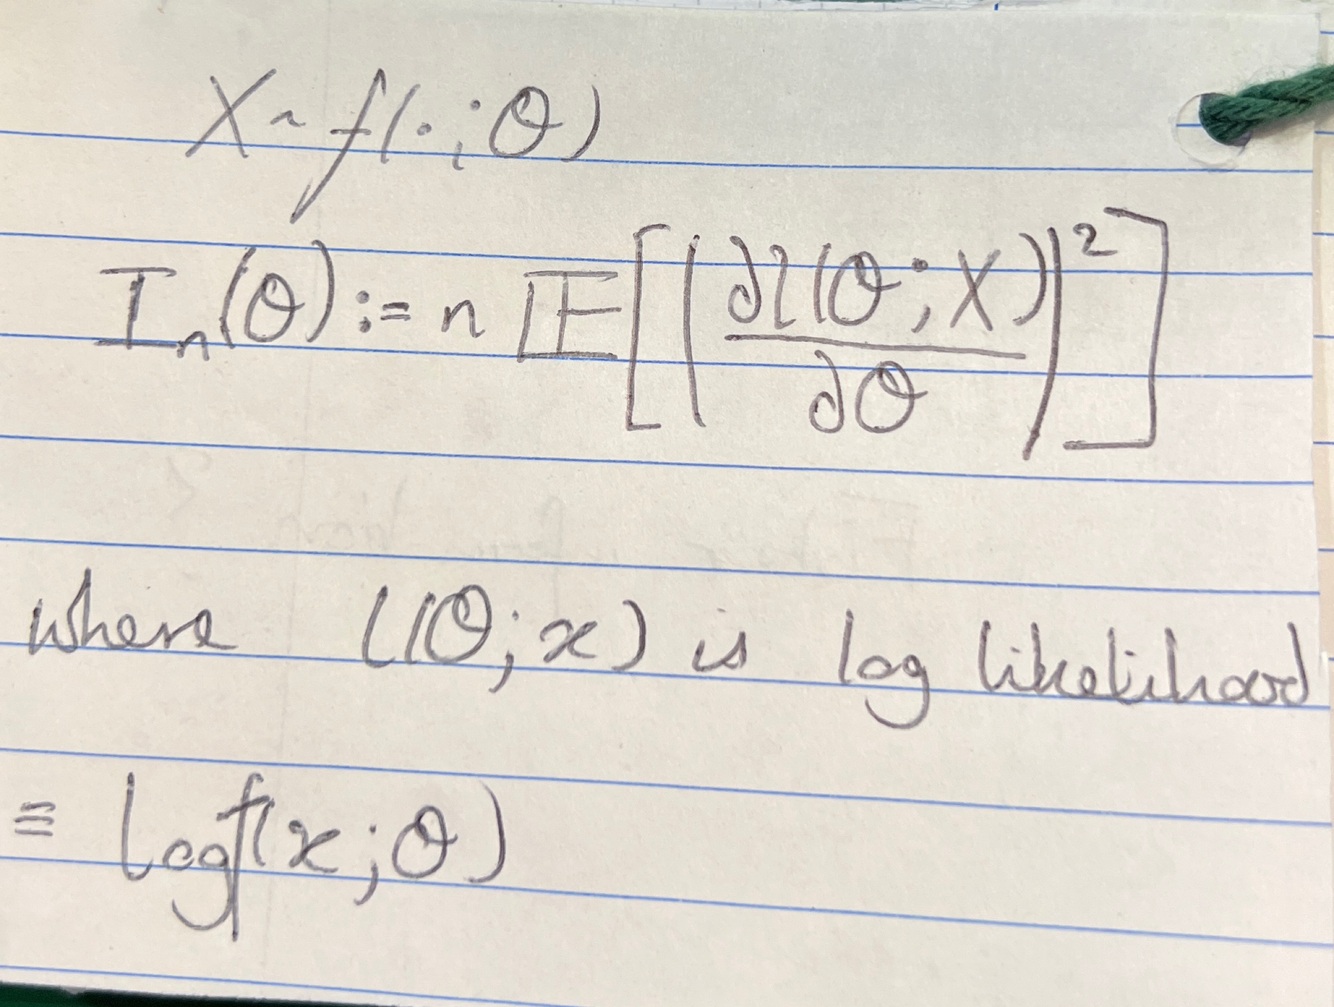 X ~ f(·;θ)
Iₙ(θ) := n 𝔼[(∂l(θ;X)/∂θ)²]
where l(θ;x) is log likelihood
≡ log f(x;θ)